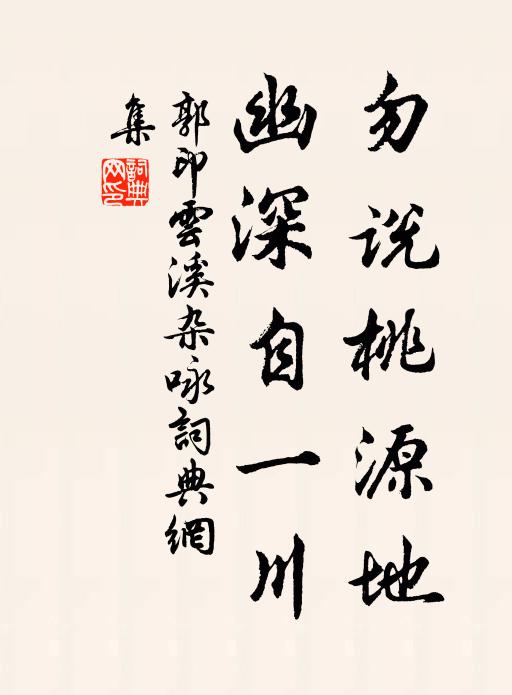 勿说桃源地
幽深自一川
郭印雲溪杂咏詞典網
集
詞典網印